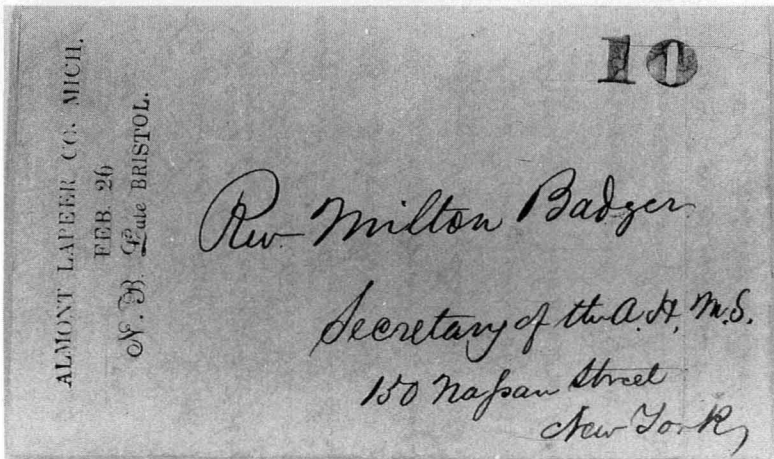 ALMONT LAPEER CO. MICH.
FEB. 26
N. B. Late BRISTOL.
10
Rev Milton Badger
Secretary of the A. H. M. S.
150 Nassau Street
New York